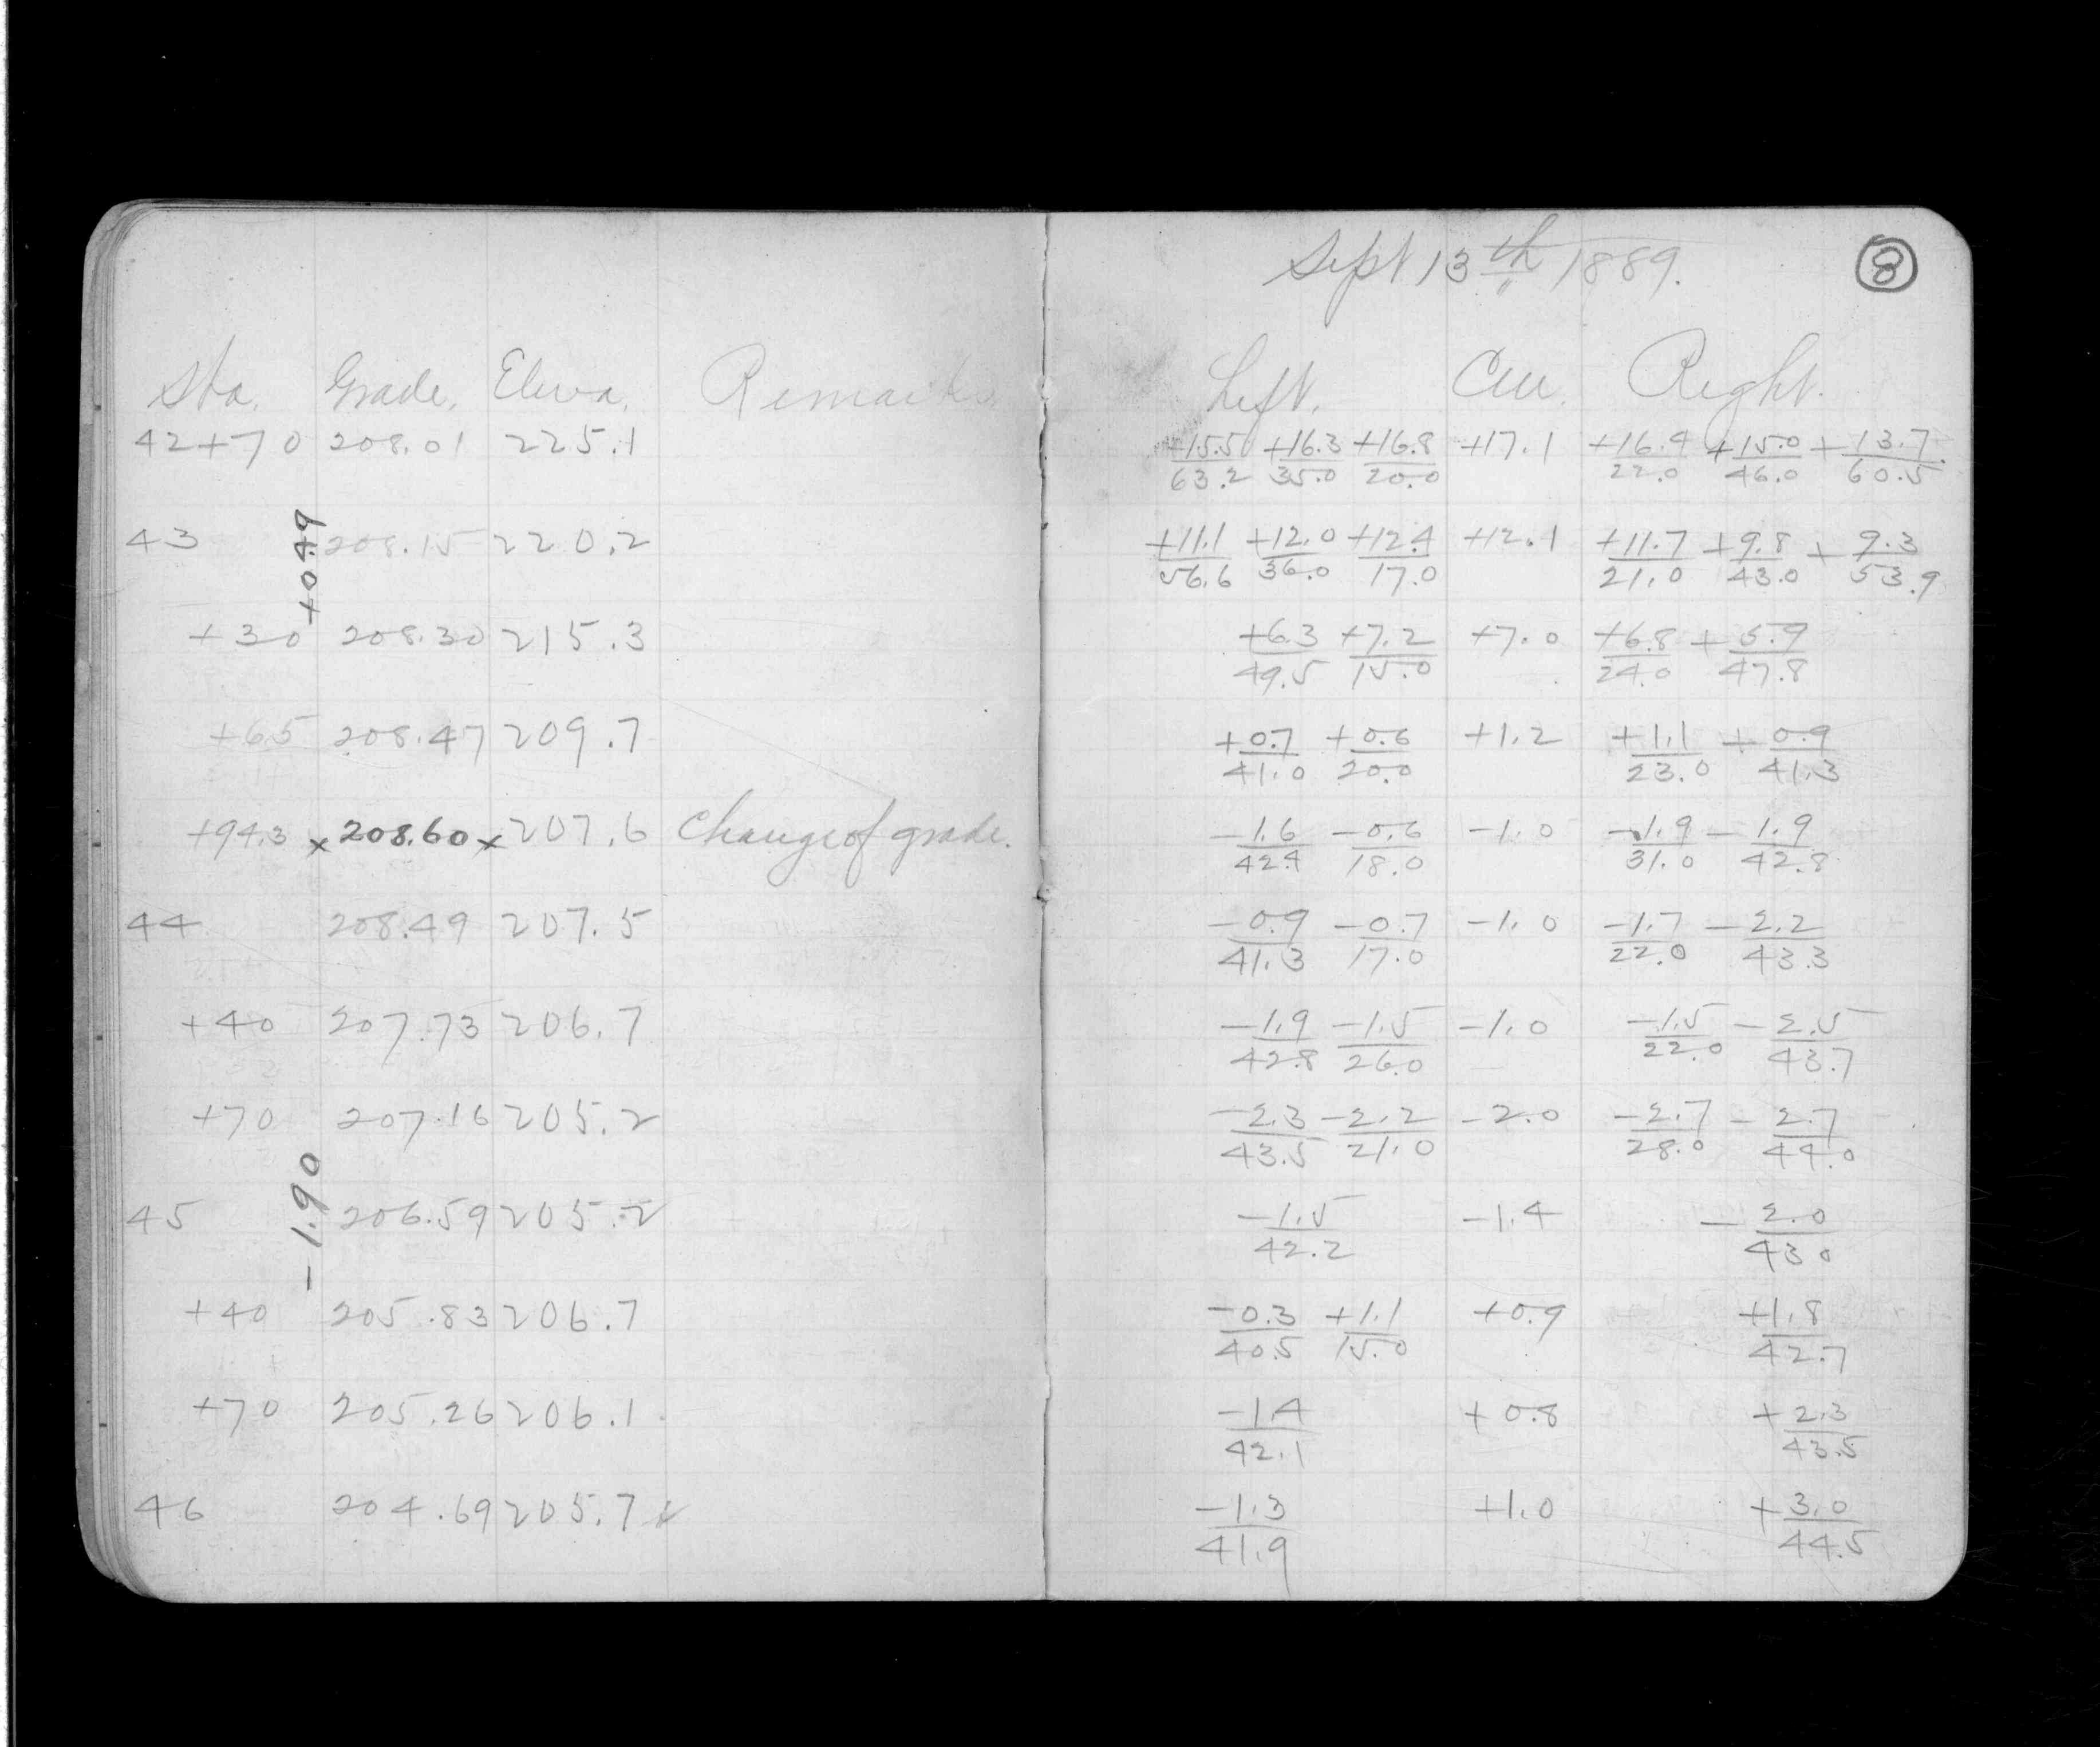 Sept 13th 1889.
8
Sta. Grade. Eleva. Remarks Left. Cen. Right.
42+70 208.01 225.1 +15.5/63.2 +16.3/35.0 +16.8/20.0 +17.1 +16.4/22.0 +15.0/46.0 +13.7/60.5
43 208.15 220.2 +11.1/56.6 +12.0/36.0 +12.4/17.0 +12.1 +11.7/21.0 +9.8/43.0 +9.3/53.9
+0.49
+30 208.30 215.3 +6.3/49.5 +7.2/15.0 +7.0 +6.8/24.0 +5.9/47.8
+65 208.47 209.7 +0.7/41.0 +0.6/20.0 +1.2 +1.1/23.0 +0.9/41.3
+94.3 x 208.60 x 207.6 Change of grade. -1.6/42.4 -0.6/18.0 -1.0 -1.9/31.0 -1.9/42.8
44 208.49 207.5 -0.9/41.3 -0.7/17.0 -1.0 -1.7/22.0 -2.2/43.3
+40 207.73 206.7 -1.9/42.8 -1.5/26.0 -1.0 -1.5/22.0 -2.5/43.7
+70 207.16 205.2 -2.3/43.5 -2.2/21.0 -2.0 -2.7/28.0 -2.7/44.0
-1.90
45 206.59 205.2 -1.5/42.2 -1.4 -2.0/43.0
+40 205.83 206.7 -0.3/40.5 +1.1/15.0 +0.9 +1.8/42.7
+70 205.26 206.1 -1.4/42.1 +0.8 +2.3/43.5
46 204.69 205.7 -1.3/41.9 +1.0 +3.0/44.5